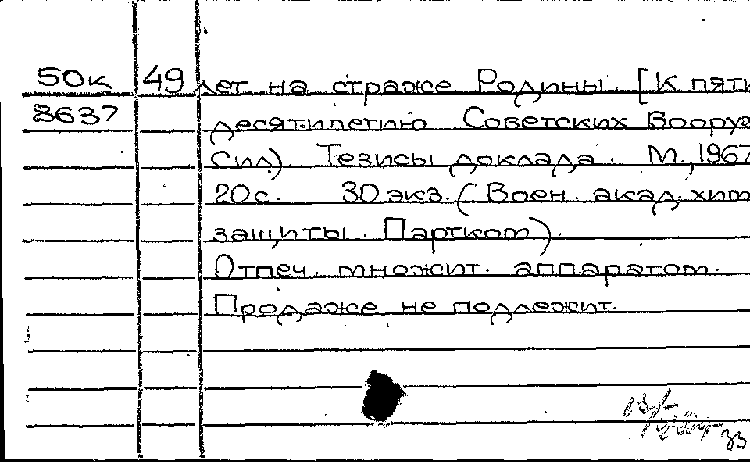 50к 49 лет на страже Родины [К пяти
8637 десятилетию Советских Вооруж
Сил) Тезисы доклада. М., 1967
20с. 30 экз. (Воен. акад. хим
защиты. Партком).
Отпеч. множит. аппаратом.
Продаже не подлежит.